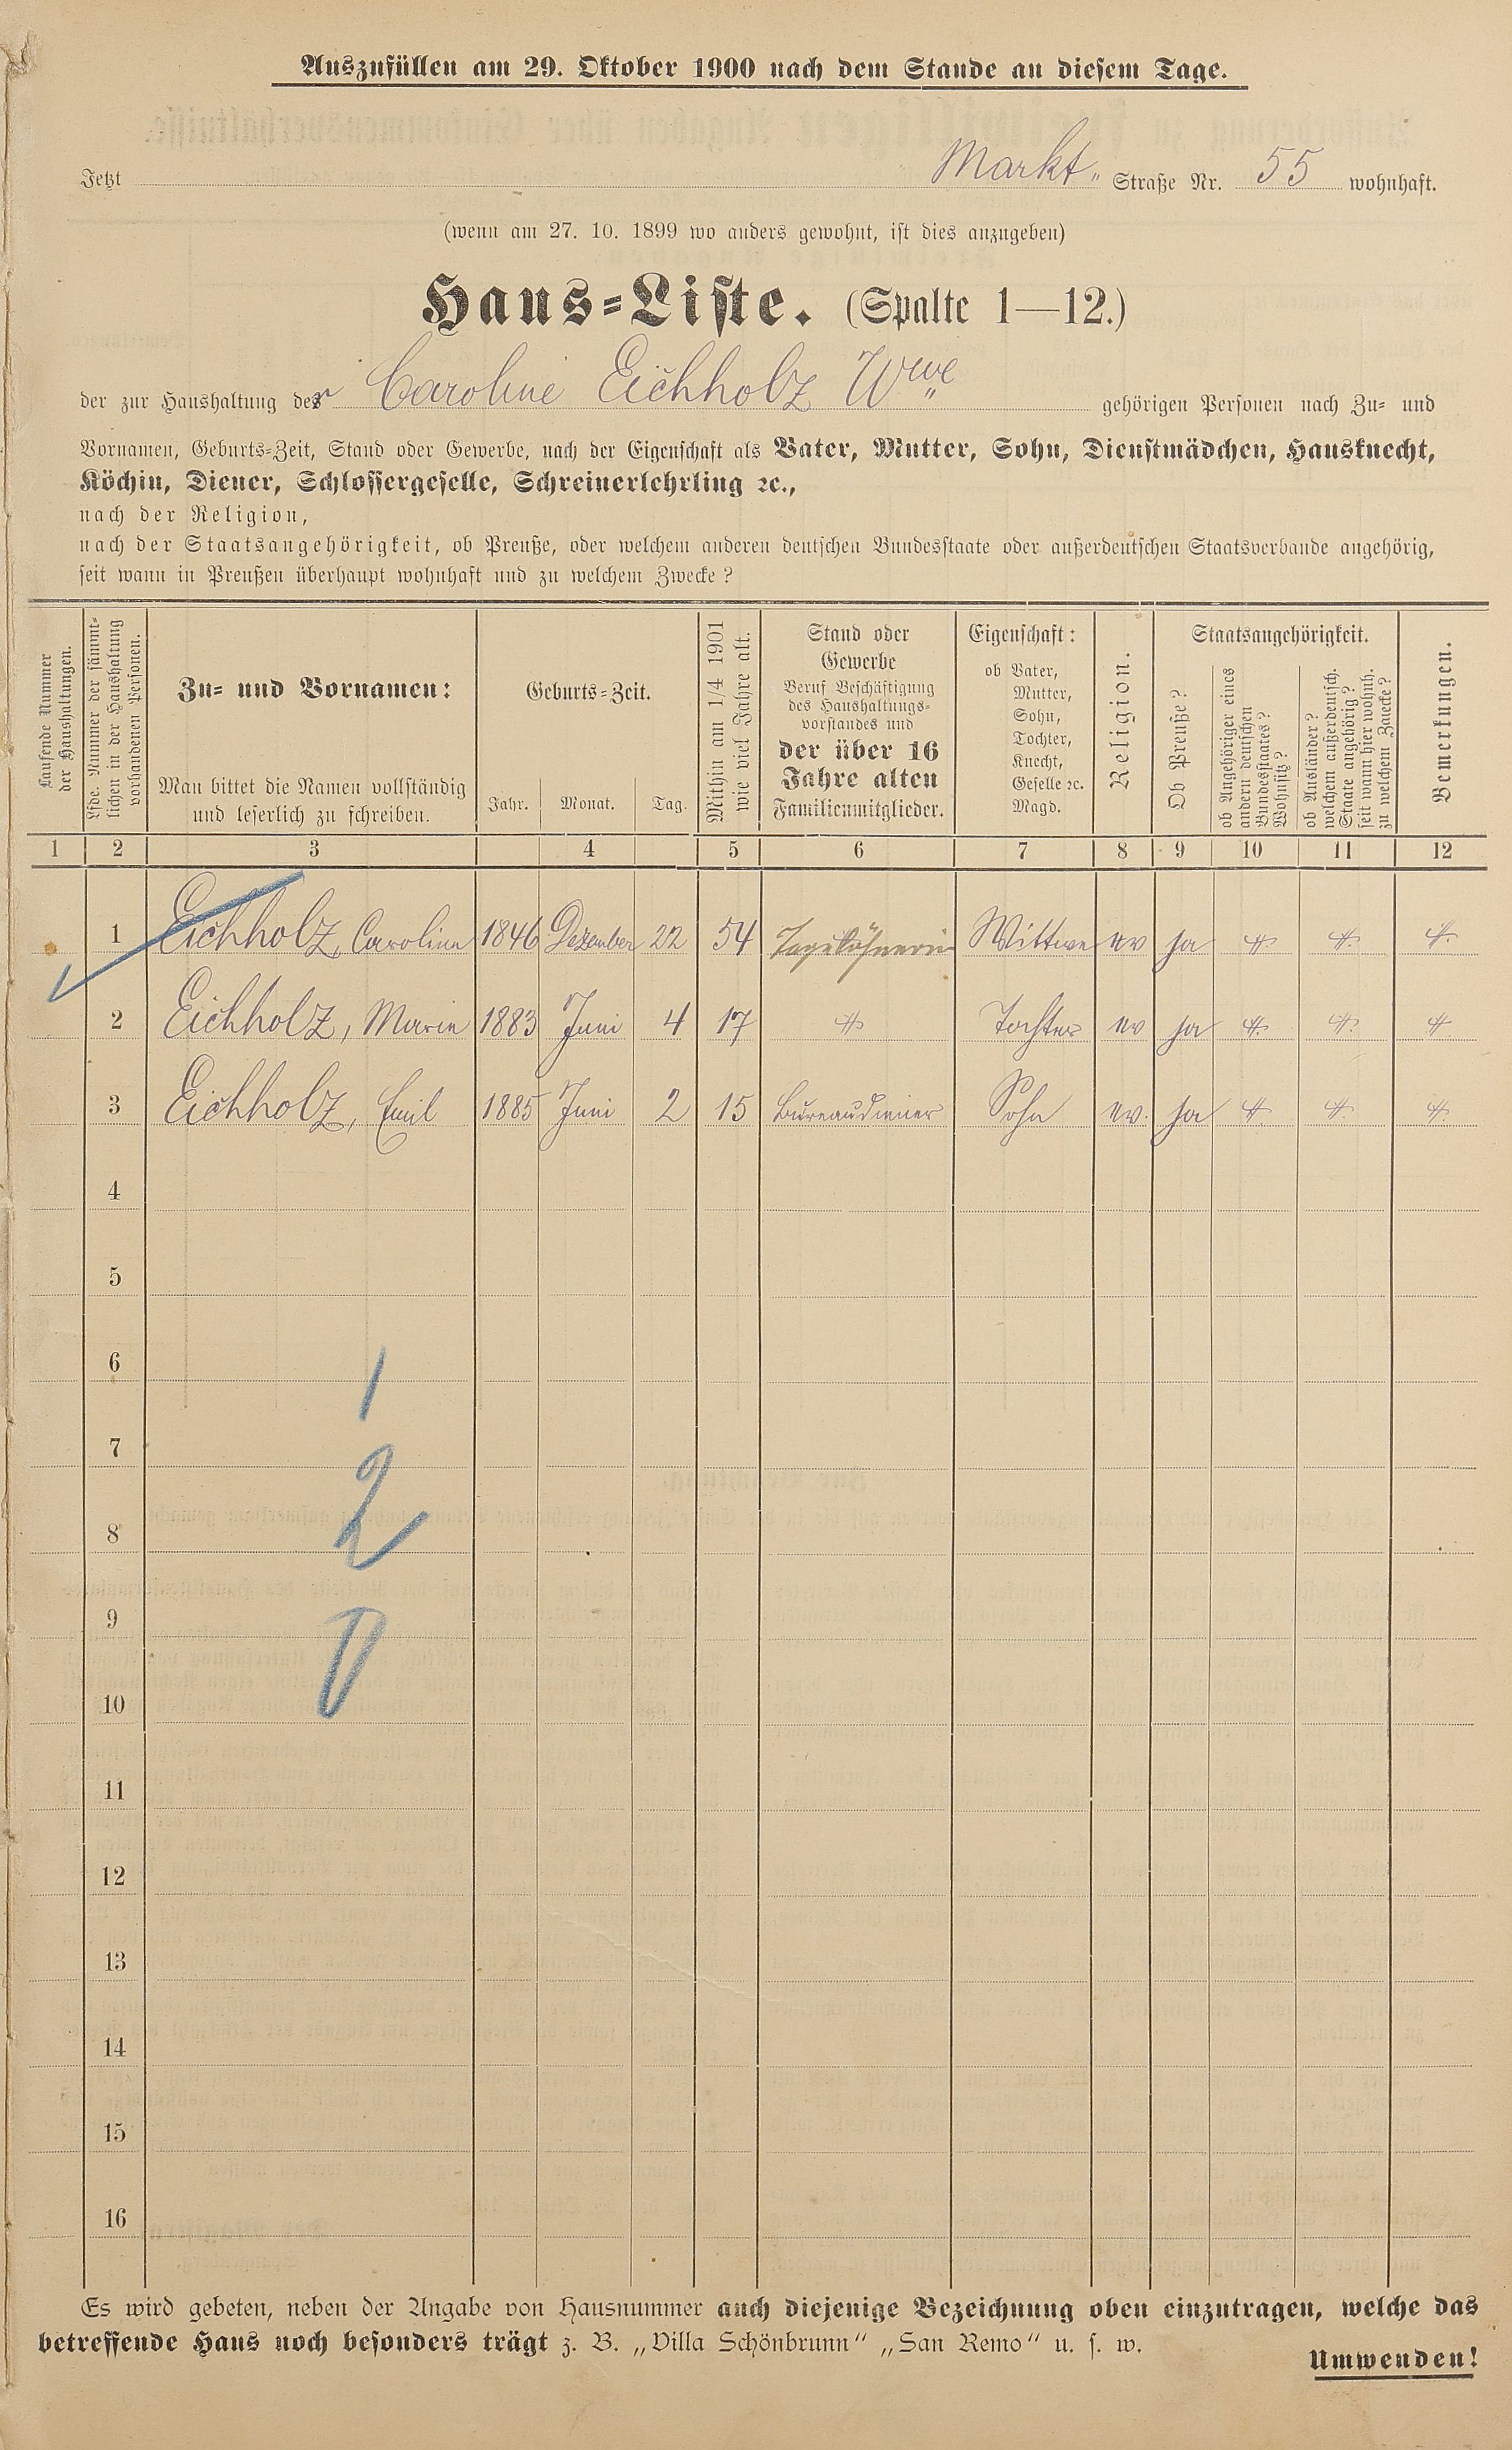 Auszufüllen am 29. Oktober 1900 nach dem Stande an diesem Tage.
Jetzt Markt- Straße Nr. 55 wohnhaft.
(wenn am 27. 10. 1899 wo anders gewohnt, ist dies anzugeben)
Haus=Liste. (Spalte 1—12.)
der zur Haushaltung der Caroline Eichholz Wwe gehörigen Personen nach Zu= und
Vornamen, Geburts=Zeit, Stand oder Gewerbe, nach der Eigenschaft als Vater, Mutter, Sohn, Dienstmädchen, Hausknecht,
Köchin, Diener, Schlossergeselle, Schreinerlehrling ꝛc.,
nach der Religion,
nach der Staatsangehörigkeit, ob Preuße, oder welchem anderen deutschen Bundesstaate oder außerdeutschen Staatsverbande angehörig,
seit wann in Preußen überhaupt wohnhaft und zu welchem Zwecke?
Laufende Nummer
der Haushaltungen.
Lfde. Nummer der sämmt=
lichen in der Haushaltung
vorhandenen Personen.
Zu= und Vornamen:
Man bittet die Namen vollständig
und leserlich zu schreiben.
Geburts=Zeit.
Jahr. Monat. Tag.
Mithin am 1/4 1901
wie viel Jahre alt.
Stand oder
Gewerbe
Beruf Beschäftigung
des Haushaltungs=
vorstandes und
der über 16
Jahre alten
Familienmitglieder.
Eigenschaft:
ob Vater,
Mutter,
Sohn,
Tochter,
Knecht,
Geselle ꝛc.
Magd.
Religion.
Staatsangehörigkeit.
Ob Preuße?
ob Angehöriger eines
andern deutschen
Bundesstaates?
Wohnsitz?
ob Ausländer?
welchem außerdeutsch.
Staate angehörig?
seit wann hier wohnh.
zu welchem Zwecke?
Bemerkungen.
1 2 3 4 5 6 7 8 9 10 11 12
1 Eichholz, Caroline 1846 Dezember 22 54 Tagelöhnerin Wittwe ev ja
2 Eichholz, Marie 1883 Juni 4 17 Tochter ev ja
3 Eichholz, Emil 1885 Juni 2 15 Bureaudiener Sohn ev. ja
4
5
6
1
7
2
8
9
0
10
11
12
13
14
15
16
Es wird gebeten, neben der Angabe von Hausnummer auch diejenige Bezeichnung oben einzutragen, welche das
betreffende Haus noch besonders trägt z. B. „Villa Schönbrunn“ „San Remo“ u. s. w.
Umwenden!